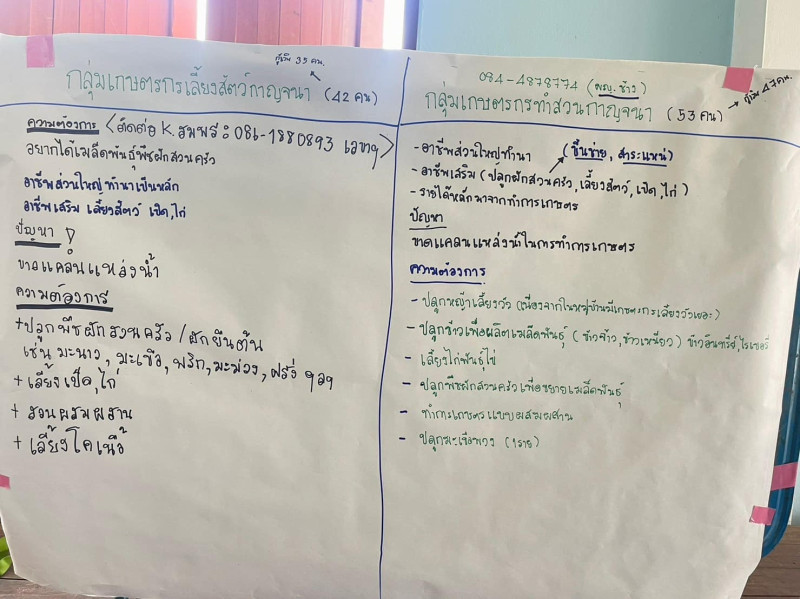 กู้เงิน 35 คน.
กลุ่มเกษตรกรเลี้ยงสัตว์กาญจนา (42 คน)
ความต้องการ <ติดต่อ K. สมพร : 081-1880893 เลขาฯ>
อยากได้เมล็ดพันธุ์พืชผักสวนครัว
อาชีพส่วนใหญ่ทำนาเป็นหลัก
อาชีพเสริม เลี้ยงสัตว์ เป็ด,ไก่
ปัญหา
ขาดแคลนแหล่งน้ำ
ความต้องการ
+ ปลูกพืชผักสวนครัว / ผักยืนต้น
เช่น มะนาว, มะเขือ, พริก, มะม่วง, ฝรั่ง ฯลฯ
+ เลี้ยงเป็ด,ไก่
+ สวนผสมผสาน
+ เลี้ยงโคเนื้อ
084-4878774 (ผญ. ช้าง)
กลุ่มเกษตรกรทำสวนกาญจนา (53 คน) → กู้เงิน 47 คน.
- อาชีพส่วนใหญ่ทำนา (ขึ้นช่าย, สาระแหน่)
- อาชีพเสริม (ปลูกผักสวนครัว, เลี้ยงสัตว์, เป็ด, ไก่)
- รายได้หลักมาจากทำการเกษตร
ปัญหา
ขาดแคลนแหล่งน้ำในการทำการเกษตร
ความต้องการ
- ปลูกหญ้าเลี้ยงวัว (เนื่องจากในหมู่บ้านมีเกษตรกรเลี้ยงวัวเยอะ)
- ปลูกข้าวเพื่อผลิตเมล็ดพันธุ์ (ข้าวจ้าว, ข้าวเหนียว) ข้าวอินทรีย์, ไรเบอรี่
- เลี้ยงไก่พันธุ์ไข่
- ปลูกพืชผักสวนครัวเพื่อขยายเมล็ดพันธุ์
- ทำการเกษตรแบบผสมผสาน
- ปลูกมะเขือพวง (1ราย)